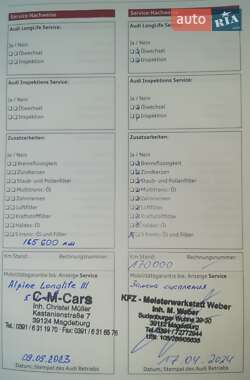 auto RIA
Service Nachweise
Audi LongLife Service:
Ja / Nein
Ölwechsel
Inspektion
Audi Inspektions Service:
Ja / Nein
Ölwechsel
Inspektion
Zusatzarbeiten:
Ja / Nein
Bremsflüssigkeit
Zündkerzen
Staub- und Pollenfilter
Multitronic-Öl
Zahnriemen
Luftfilter
Kraftstofffilter
Haldex-Öl
S tronic-Öl und -Filter
165 600 км
Km Stand: Rechnungsnummer:
Mobilitätsgarantie bis: Anzeige Service
Alpine Longlife III
C-M-Cars
Inh. Christof Müller
Kastanienstraße 7
39124 Magdeburg
Tel.: 0391 / 6 31 19 70 · Fax: 0391 / 6 31 65 76
09.05.2023
Datum, Stempel des Audi Betriebs
Service Nachweise
Audi LongLife Service:
Ja / Nein
Ölwechsel
Inspektion
Audi Inspektions Service:
Ja / Nein
Ölwechsel
Inspektion
Zusatzarbeiten:
Ja / Nein
Bremsflüssigkeit
Zündkerzen
Staub- und Pollenfilter
Multitronic-Öl
Zahnriemen
Luftfilter
Kraftstofffilter
Haldex-Öl
S tronic-Öl und -Filter
Km Stand: Rechnungsnummer:
170000
Mobilitätsgarantie bis: Anzeige Service
Замена
KFZ - Meisterwerkstatt Weber
Inh. M. Weber
Sudenburger Wuhne
39112 Magdeburg
Tel.0391/72772944
17 04 2024
Datum, Stempel des Audi Betriebs